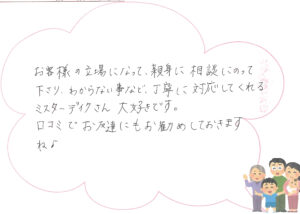 お客様の立場になって、親身に相談にのって
下さり、わからない事など、丁寧に対応してくれる
ミスターデイクさん 大好きです。
口コミでお友達にもお勧めしておきます
ね♪